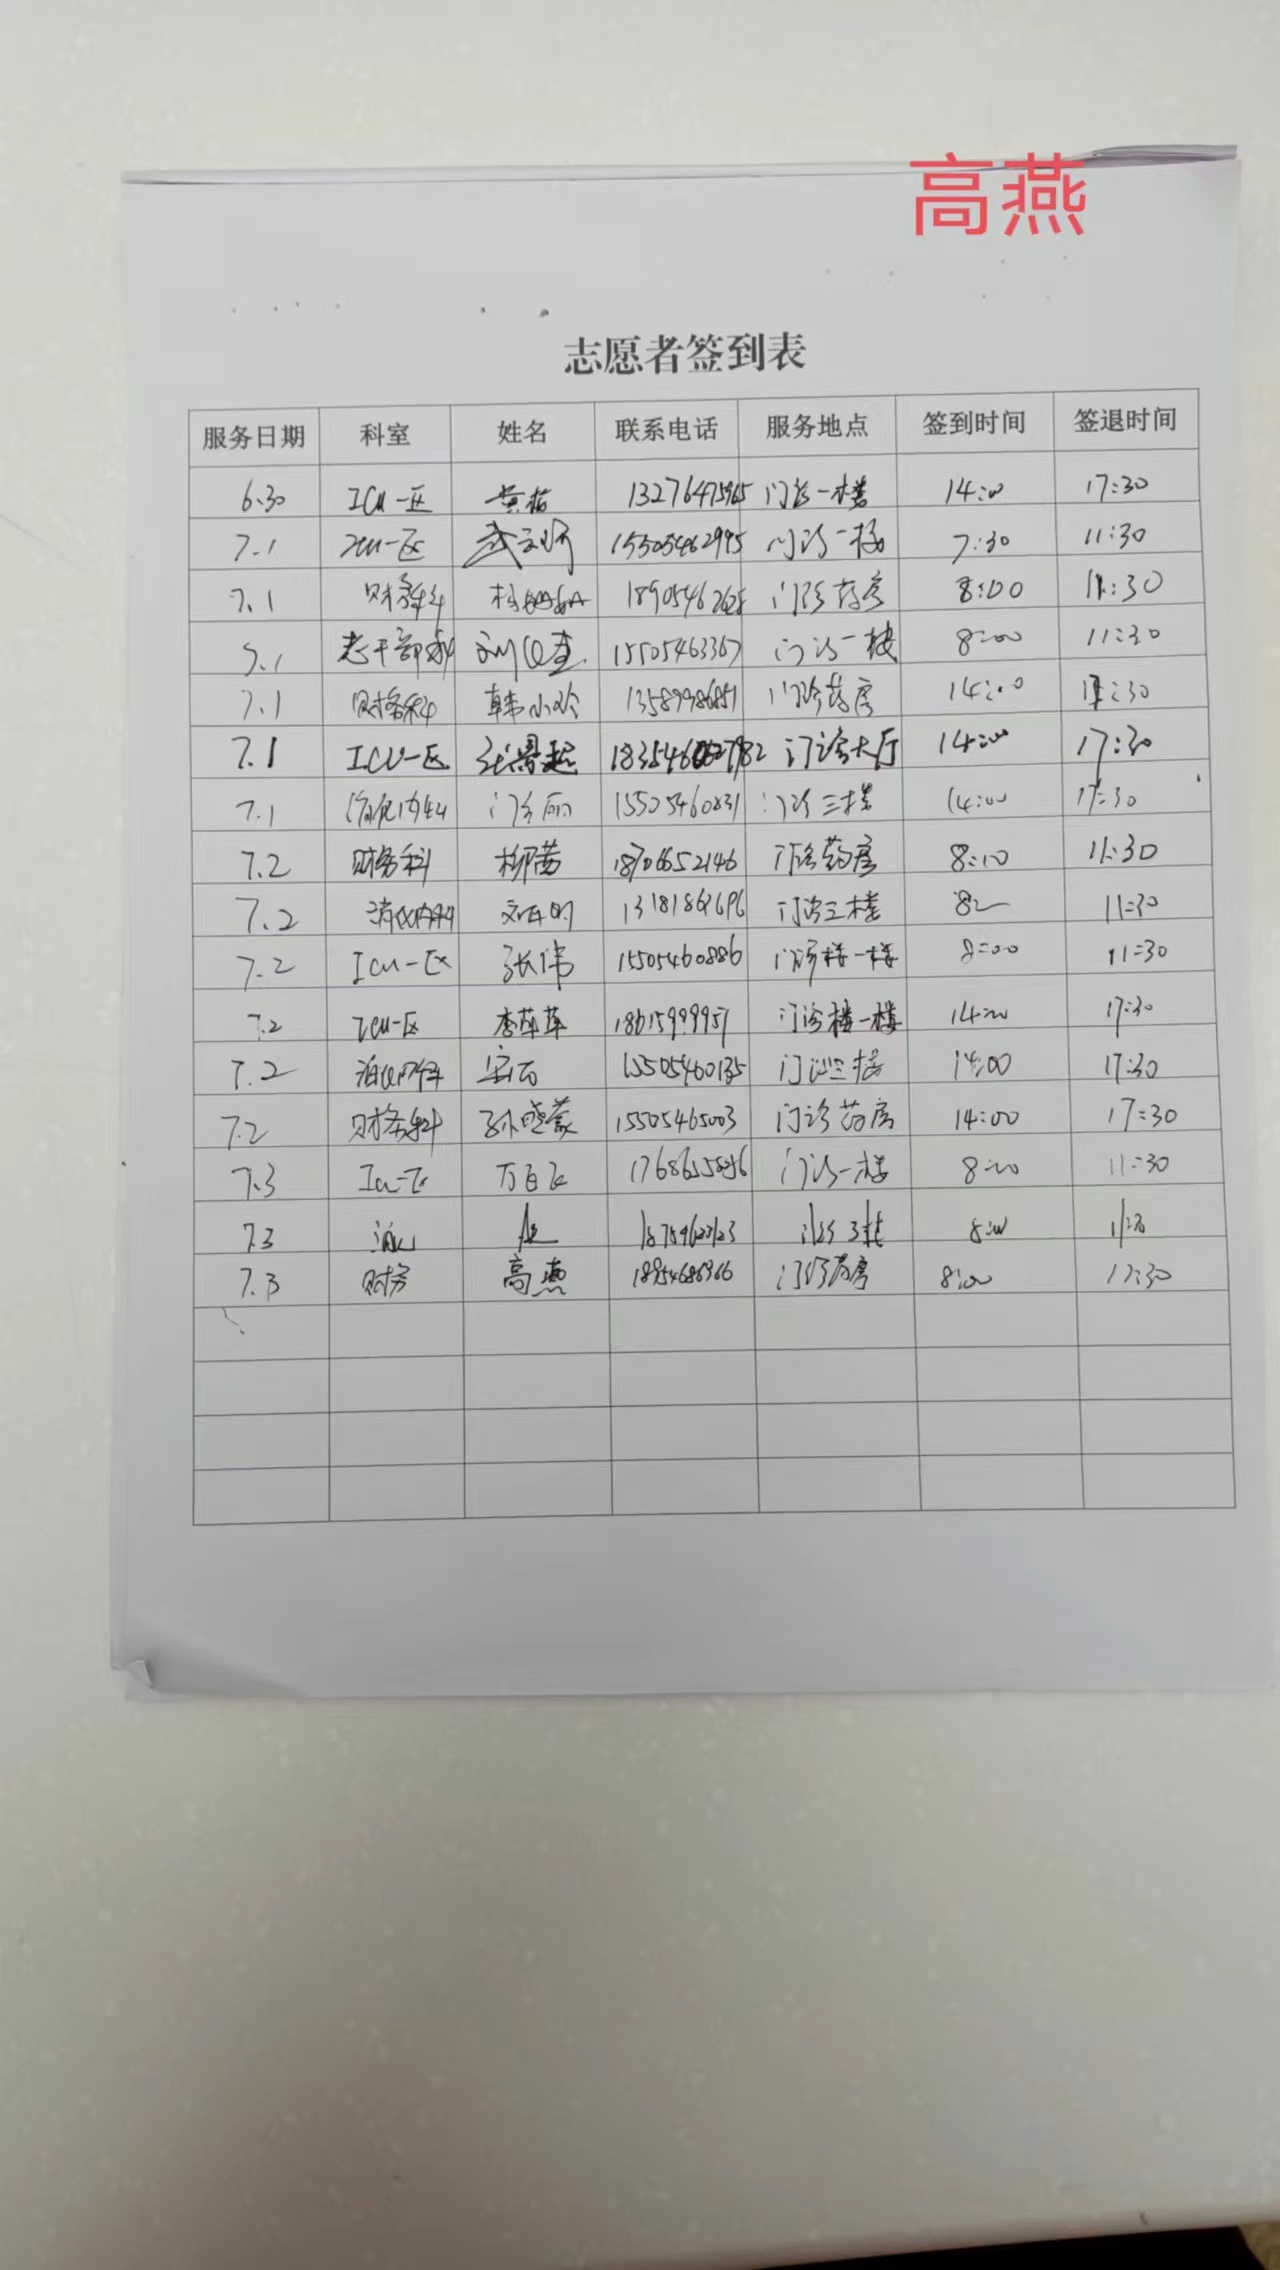 高燕
志愿者签到表
服务日期 科室 姓名 联系电话 服务地点 签到时间 签退时间
6.30 ICU一区 13276475965 门诊一楼 14:00 17:30
7.1 ICU一区 15505462995 门诊一楼 7:30 11:30
7.1 财务科 门诊药房 8:00 11:30
7.1 老干部科 15505463367 门诊一楼 8:00 11:30
7.1 财务科 韩小冷 13589986851 门诊药房 14:00 17:30
7.1 ICU一区 张景超 门诊大厅 14:00 17:30
7.1 消化内科 15505460831 门诊三楼 14:00 17:30
7.2 财务科 柳茜 18706652146 门诊药房 8:10 11:30
7.2 消化内科 门诊三楼 11:30
7.2 ICU一区 张伟 15505460886 门诊楼一楼 8:00 11:30
7.2 ICU一区 李苹苹 18615999957 门诊楼一楼 14:00 17:30
7.2 消化内科 15505460135 门诊三楼 14:00 17:30
7.2 财务科 孙晓蒙 15505465003 门诊药房 14:00 17:30
7.3 门诊一楼 8:00 11:30
7.3 8:00
7.3 财务 高燕 18954686966 门诊药房 8:00